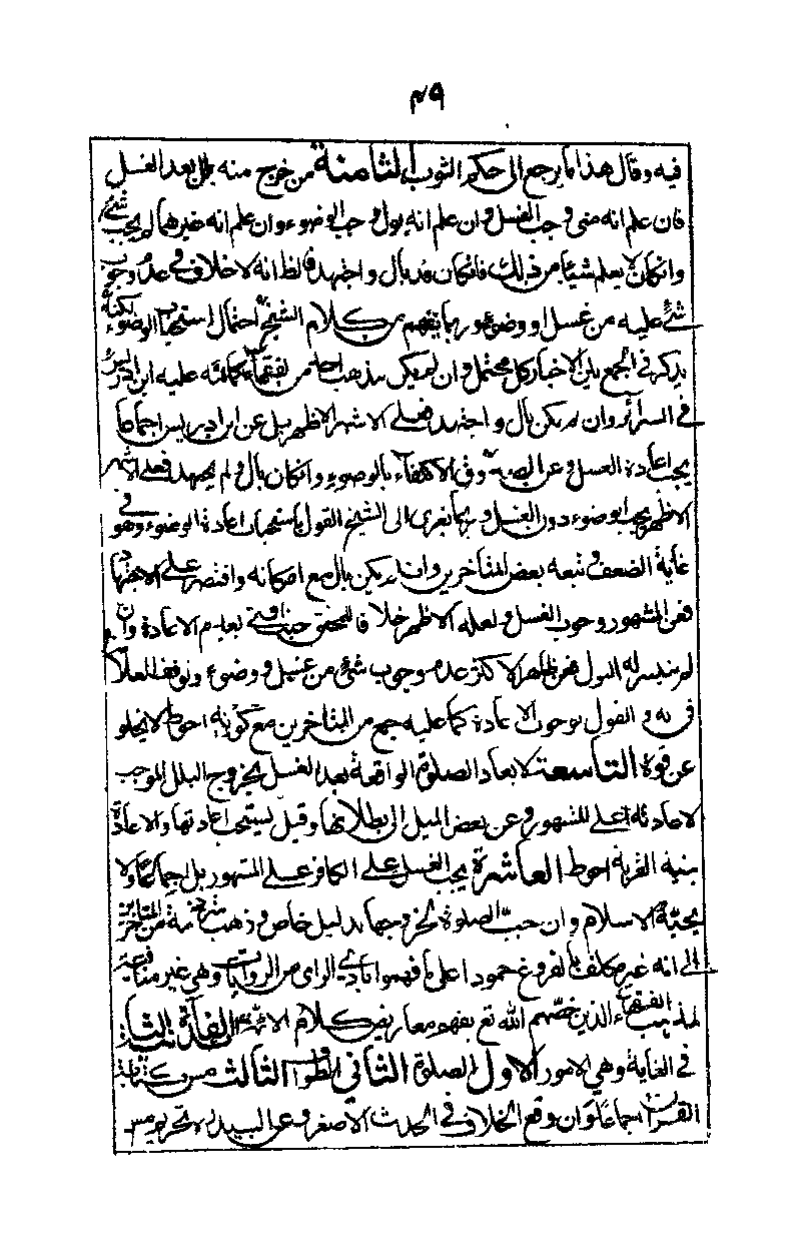 ٤٩
فيه وقال هذا ما يرجع الى حكم الثوب الثامنة من خرج منه بلل بعد الغسل
فان علم انه منى وجب الغسل وان علم انه بول وجب الوضوء وان علم انه غيرهما لم يجب شئ
وان كان لا يعلم شيئا من ذلك فان كان قد بال واجتهد فالظ انه لا خلاف فى عدم وجوب
شئ عليه من غسل او وضوء وربما يفهم من كلام الشيخ احتمال استحباب الوضوء لكنه
يذكر فى الجمع بين الاخبار كل محتمل وان لم يكن مذهب احد من الفقهاء كما نبه عليه ابن ادريس
فى السرائر وان لم يكن بال واجتهد فعلى الاشهر الاظهر بل عن ابن ادريس اجماعا
يجب اعادة الغسل وعن الصدوق الاكتفاء بالوضوء وان كان بال ولم يجتهد فعلى الاشهر
الاظهر يجب الوضوء دون الغسل وربما يعزى الى الشيخ القول باستحباب اعادة الوضوء وهو فى
غاية الضعف وتبعه بعض المتاخرين وان لم يكن بال مع امكانه واقتصر على الاجتهاد
فعن المشهور وجوب الغسل ولعله الاظهر خلافا للمحقق حيث افتى بعدم الاعادة وان
لم يتيسر له البول فعن ظاهر الاكثر عدم وجوب شئ من غسل ووضوء وتوقف العلامة
فى به والقول بوجوب الاعادة كما عليه جمع من المتاخرين مع كونه احوط لا يخلو
عن قوة التاسعة لا يعاد الصلوة الواقعة بعد الغسل بخروج البلل الموجب
لاعادته على المشهور وعن بعض الميل الى بطلانها وقيل يستحب اعادتها والاعادة
بنية القربة احوط العاشرة يجب الغسل على الكافر على المشهور بل اجماعا ولا
يجبه الاسلام وان جب الصلوة لخروجها بدليل خاص وذهب شرذمة من المتاخرين
الى انه غير مكلف بالفروع جمودا على ما فهموا بادى الراى من الروايات وهى غير منافية
لمذهب الفقهاء الذين خصهم الله تع بفهم معاريض كلام الائمة الفائدة الثالثة
فى الغاية وهى الامور الاول الصلوة الثانى الطواف الثالث مس كتابة
القران اجماعا وان وقع الخلاف فى الحدث الاصغر وعن السيد تحريم مس